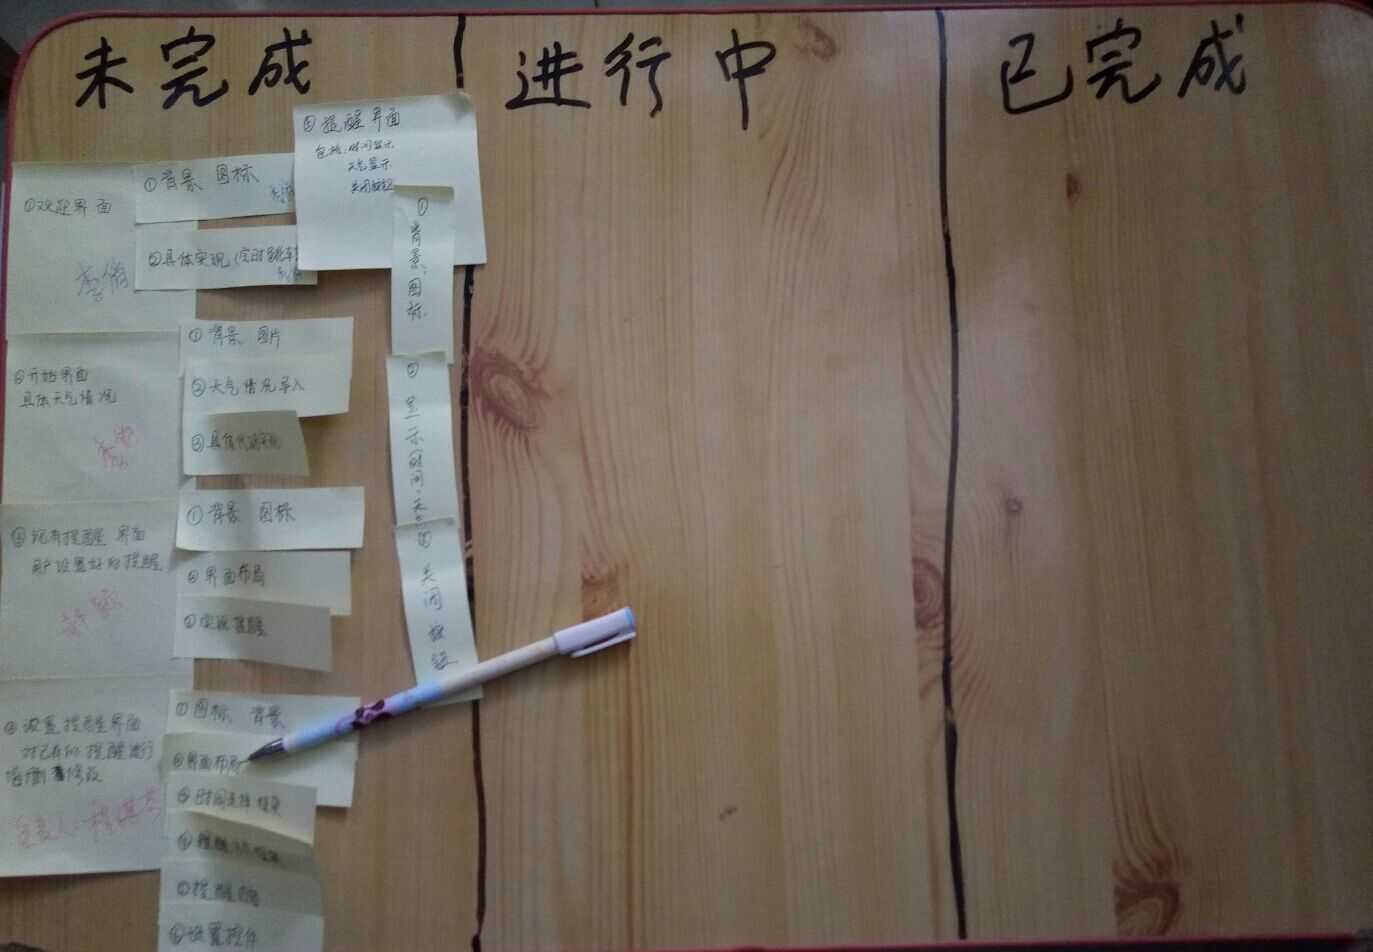 未完成
进行中
已完成
①欢迎界面
①背景 图标
②具体实现
⑤提醒界面
包括:时间显示
天气显示
关闭按钮
①背景、图标
②显示时间、天气
③关闭按钮
②开始界面
具体天气情况
①背景 图片
②天气情况导入
③具体代码实现
③现有提醒界面
用户设置好的提醒
①背景 图标
②界面布局
③实现提醒
④设置提醒界面
对已有的提醒进行
增删修改
负责人
①图标 背景
②界面布局
③时间选择框架
⑤提醒内容
⑥设置控件